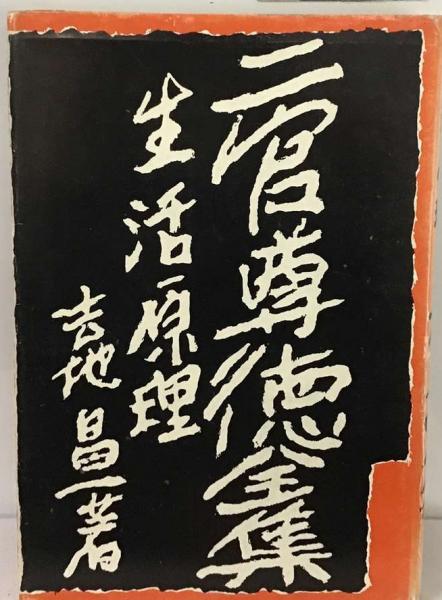 二宮尊徳全集
生活原理
吉地昌一著